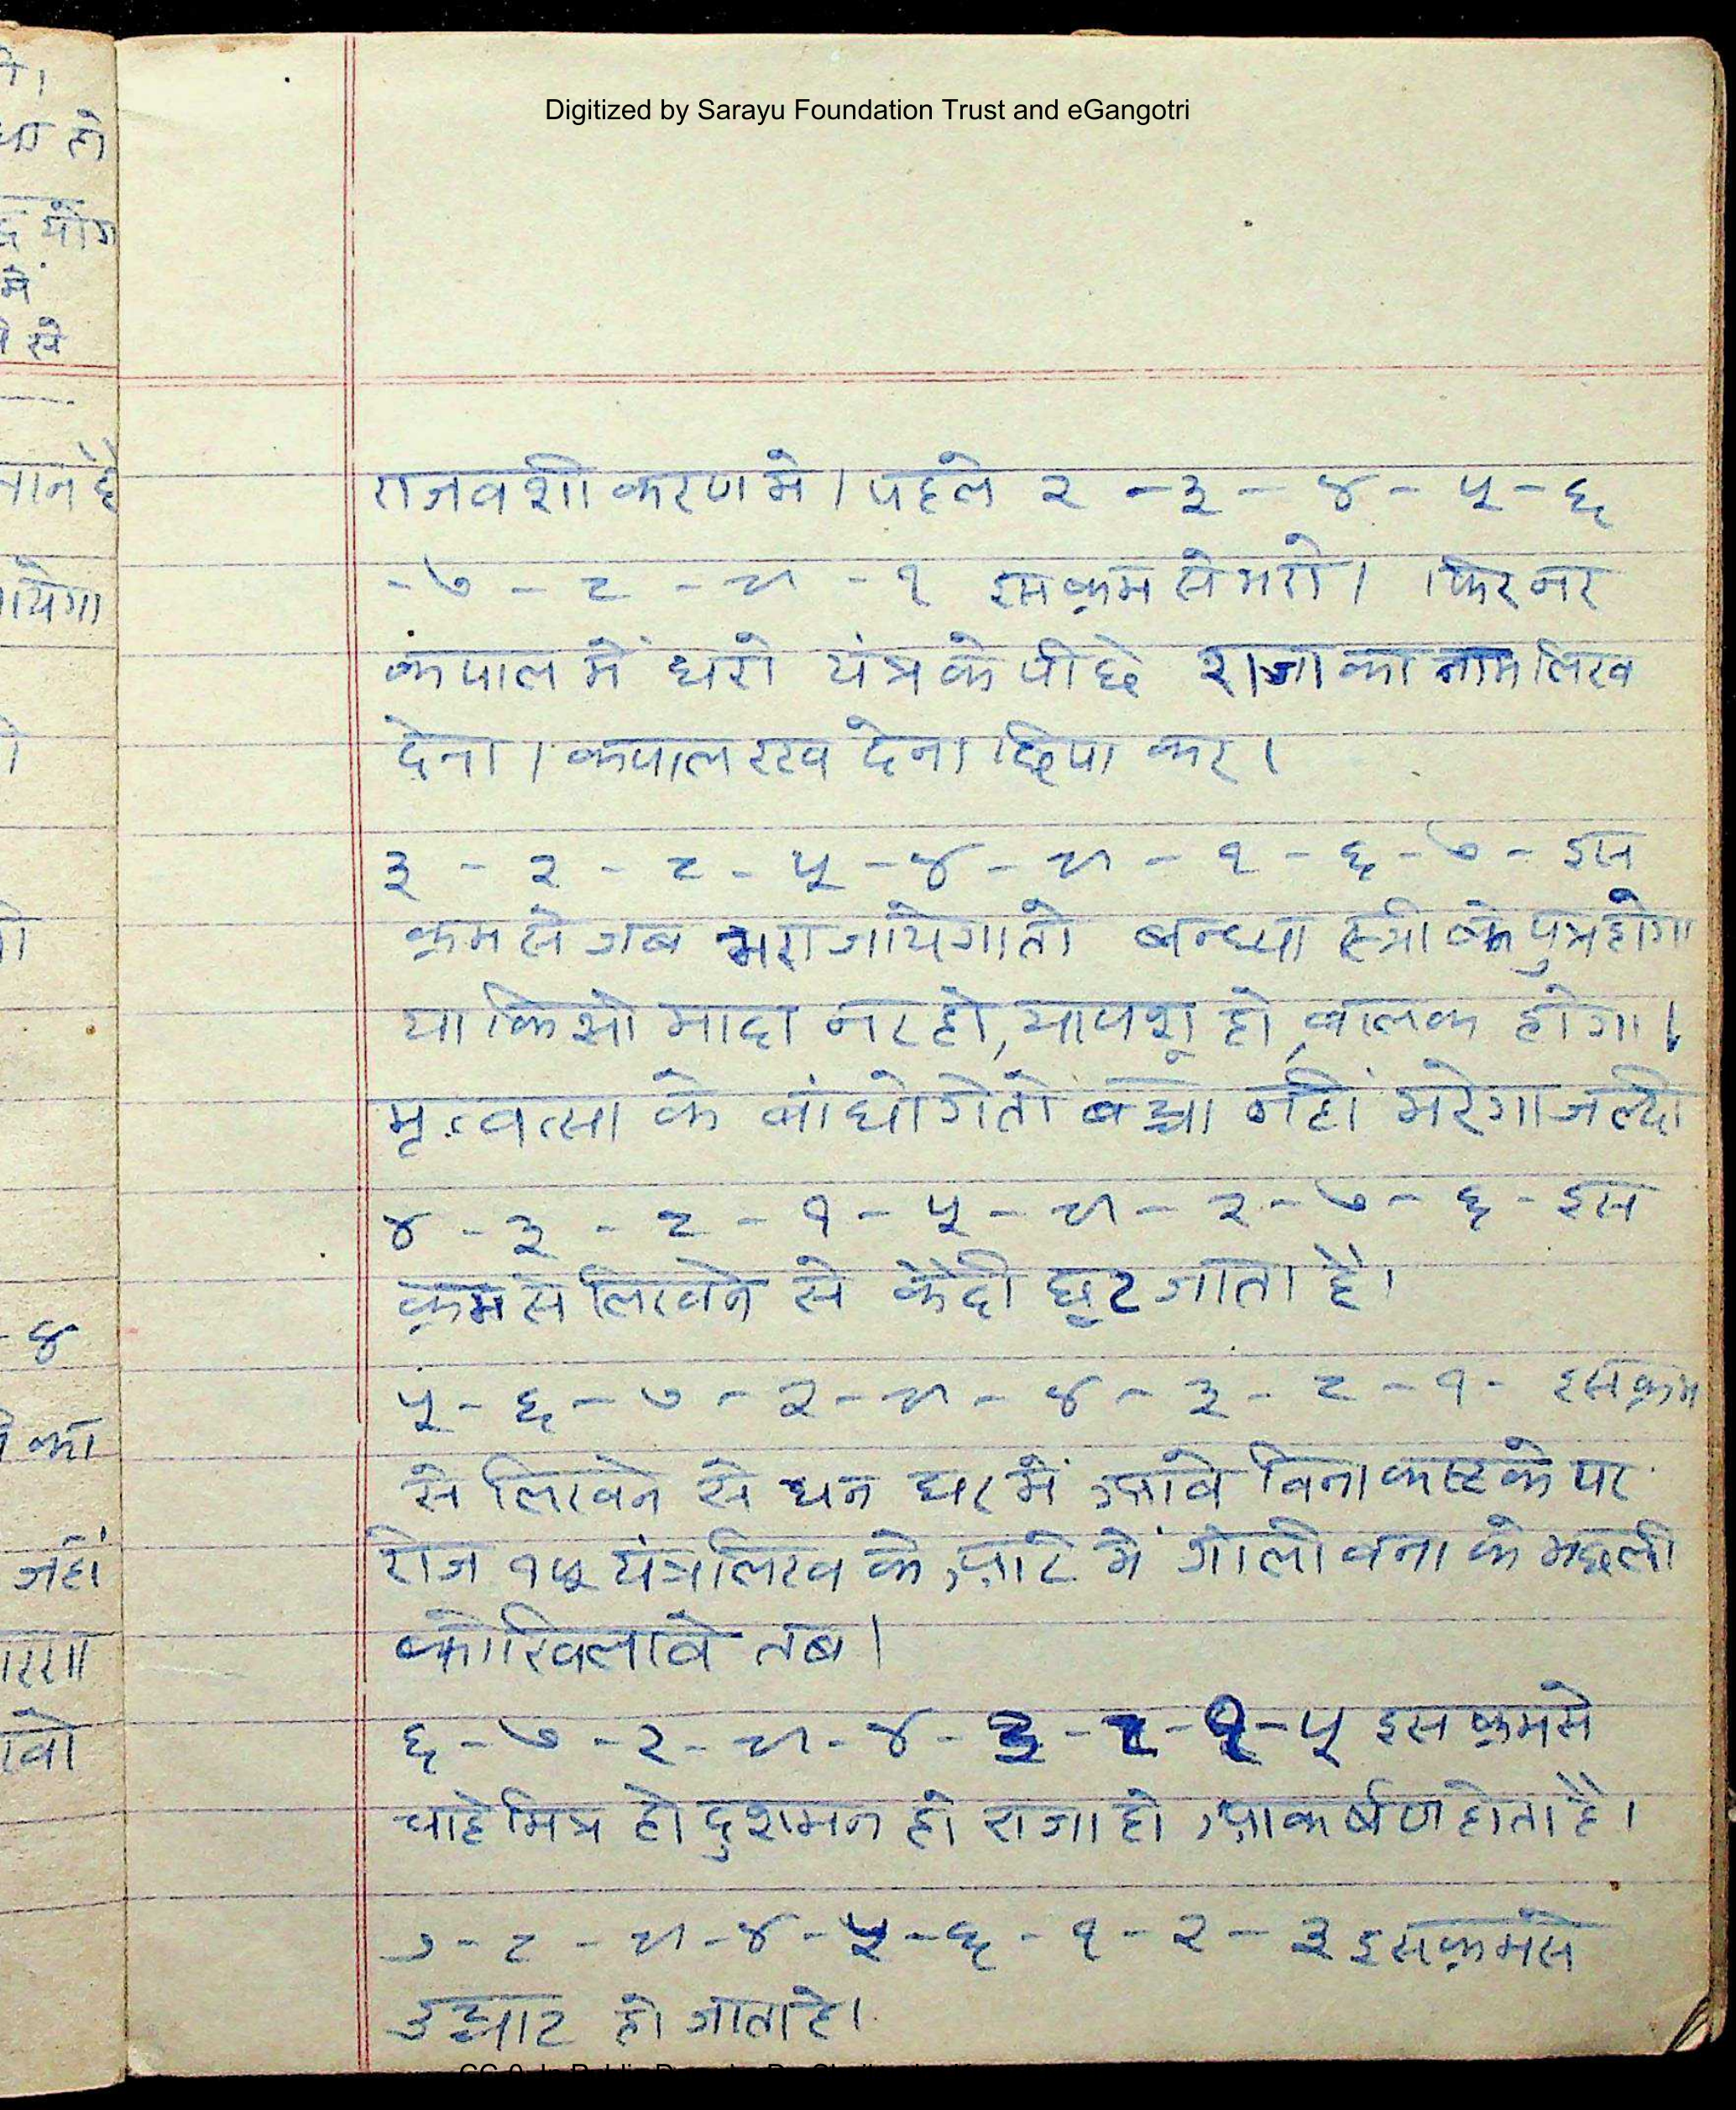 Digitized by Sarayu Foundation Trust and eGangotri
राजवशीकरण मे। पहले २ - ३ - ४ - ५ - ६
- ७ - ८ - ९ - १ इस क्रम से भरो। फिर नर
कपाल में धरो यंत्र के पीछे राजा का नाम लिख
देना। कपाल रख देना छिपा कर।
३ - २ - ८ - ५ - ४ - ९ - १ - ६ - ७ - इस
क्रम से जब भरा जायेगा तो बन्ध्या स्त्री के पुत्र होगा
या किसी मादा नर हो, या पशू हो, बालक होगा।
मृत्वत्सा के बांधोगे तो बच्चा नहीं मरेगा जल्दी
४ - ३ - ८ - १ - ५ - ९ - २ - ७ - ६ - इस
क्रम से लिखने से कैदी छूट जाता है।
५ - ६ - ७ - २ - ९ - ४ - ३ - ८ - १ - इस क्रम
से लिखने से धन घर में आवे विना कष्ट के पर
रोज १५ यंत्र लिख के आटे में गोली बना के मछली
को खिलावे तब।
६ - ७ - २ - ९ - ४ - ३ - ८ - १ - ५ इस क्रम से
चाहे मित्र हो दुशमन हो राजा हो आकर्षण होता है।
७ - ८ - ९ - ४ - ५ - ६ - १ - २ - ३ इस क्रम से
उच्चाट हो जाता है।